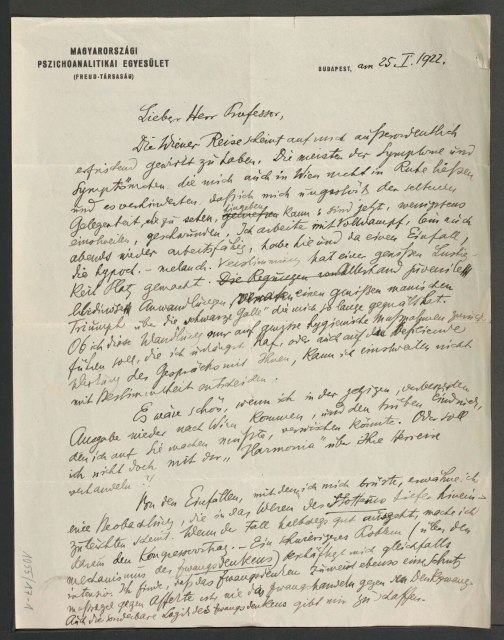 MAGYARORSZÁGI
PSZICHOANALITIKAI EGYESÜLET
(FREUD-TÁRSASÁG)
BUDAPEST, am 25. I. 1922.
Lieber Herr Professor,
Die Wiener Reise scheint auf mich außerordentlich
erfrischend gewirkt zu haben. Die meisten der Symptome und
Symptömchen, die mich auch in Wien nicht in Ruhe ließen
und es verhinderten, daß ich mich ungestört der seltenen
Gelegenheit, Sie zu sehen, hingeben kann, sind jetzt, wenigstens
einstweilen, geschwunden. Ich arbeite mit Volldampf, bin auch
abends wieder arbeitsfähig, habe hie und da einen Einfall,
die hypoch. - melanch. Verstimmung hat einer gewissen Lustig-
keit Platz gemacht. Allerhand
Anwandlungen einen gewissen manischen
Triumph über die "schwarze Galle" die mich so lange gequält hat.
Ob ich diese Wandlung nur auf gewisse hygienische Maßnahmen zurück-
führen soll, die ich unlängst traf, oder auch auf die
Wirkung des Gesprächs mit Ihnen, kann ich einstweilen nicht
mit Bestimmtheit entscheiden.
Es wäre schön, wenn ich in der jetzigen, verbesserten
Ausgabe wieder nach Wien kommen, und den trüben Eindruck,
den ich auf Sie machen mußte, verwischen könnte. Oder soll
ich nicht doch mit der "Harmonia" über Ihre Herreise
verhandeln?!
Von den Einfällen, mit denen ich mich brüste, erwähne ich
eine Beobachtung, die in das Wesen des tiefer hinein-
zuleuchten scheint. Wenn der Fall halbwegs gut ausgeht, mach ich
daraus den Kongressvortrag. - Ein schwieriges Problem (über den
Mechanismus des Zwangsdenkens) beschäftigt mich gleichfalls
intensiv. Ich finde, daß das Zwangsdenken zuweilen ebenso eine Schutz-
maßregel gegen Affekte ist, wie das Zwangshandeln gegen den Denkzwang.
Auch die sonderbare Logik des Zwangsdenkens gibt mir zu schaffen.